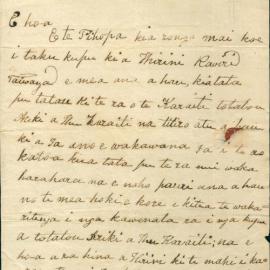 E hoa
E te Pihopa kia rongo mai koe
i taku kupu ki a Thirini Rawiri
Taiwaga e mea ana a hau, kia tata
pu tatau ki te ra o te Karaiti totatou
Ariki a Ihu Karaiti na titiro atu a hau
ki a Ia ano e wakawana i a te ao
katoa kua tata pu te ra nui waka
harahara na e noho pawri ana a hau
no te mea hoki e kore e kitea te waka
ritenga i nga kawenata ra i nga kupu
a totatou Ariki a Ihu Karaiti, na e
hoa a ra hina a Hirini ki te mahi i ka